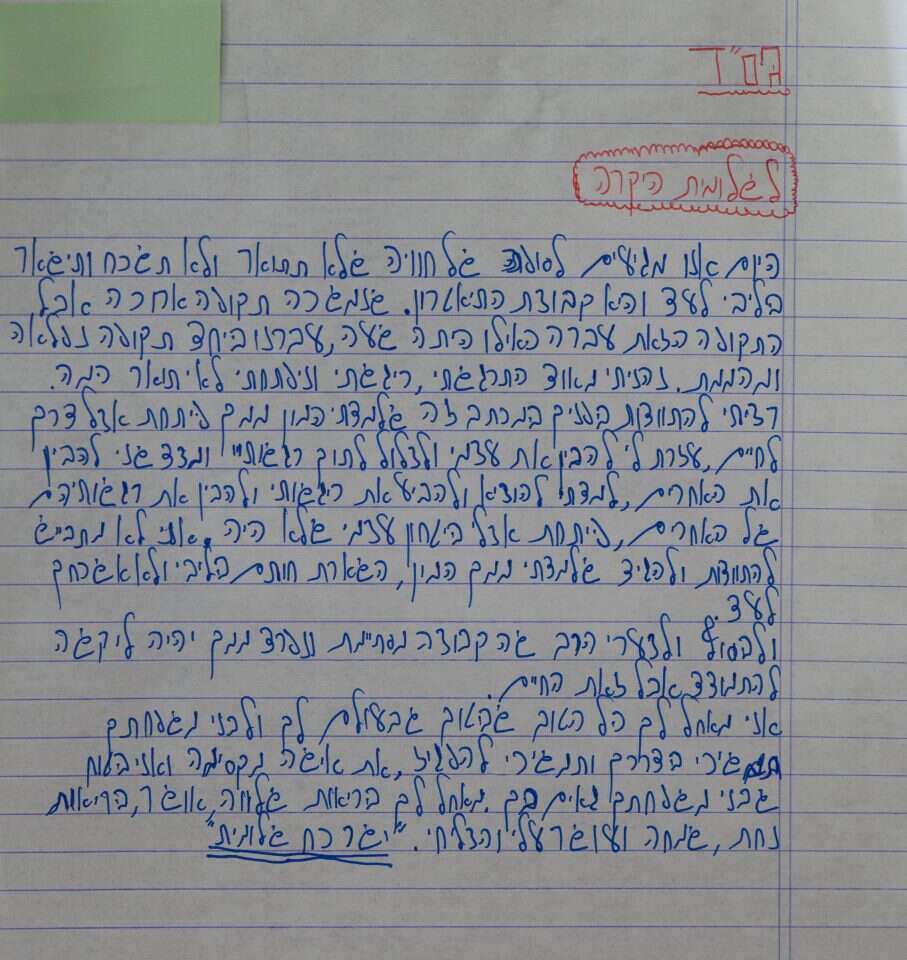 בס"ד
לשלומית היקרה
היום אנו מגיעים לסופה של חוויה שלא תתואר ולא תשכח ותישאר
בליבי לעד והיא קבוצת התיאטרון. שנמשכה תקופה ארוכה אבל
התקופה הזאת עברה כאילו היתה שעה, עברנו ביחד תקופה נפלאה
ומהממת. נהניתי מאוד התרגשתי, ריגשתי ונילחתתי לא יתואר כמה.
רציתי להתוודות בפנים במכתב זה שלמדתי המון ממך פיתחת אצלי דרך
לחיים, עזרת לי להבין את עצמי ולצלול לתוך רגשותיי ומצד שני להבין
את האחרים, למדתי להוציא ולהביע את ריגשותי ולהבין את רגשותיהם
של האחרים, פיתחת אצלי ביטחון עצמי שלא היה. אני לא מתבייש
להתוודות ולהגיד שלמדתי ממך המון, השארת חותם בליבי ולא אשכחך
לעד.
ולבסוף ולצערי הרב שהקבוצה מסתיימת ונפרד ממך יהיה לי קשה
להתמודד אבל זאת החיים.
אני מאחל לך כל הטוב שבטוב שבעולם לך ולבני משפחתך
תמשיכי בדרכך ותמשיכי להשפיע, את אישה מקסימה ואני בטוח
שבני משפחתך גאים בך. מאחל לך בריאות שלווה, אושר, בריאות
נחת, שמחה ועושר עלי והצליחי. "יישר כח שלומית"